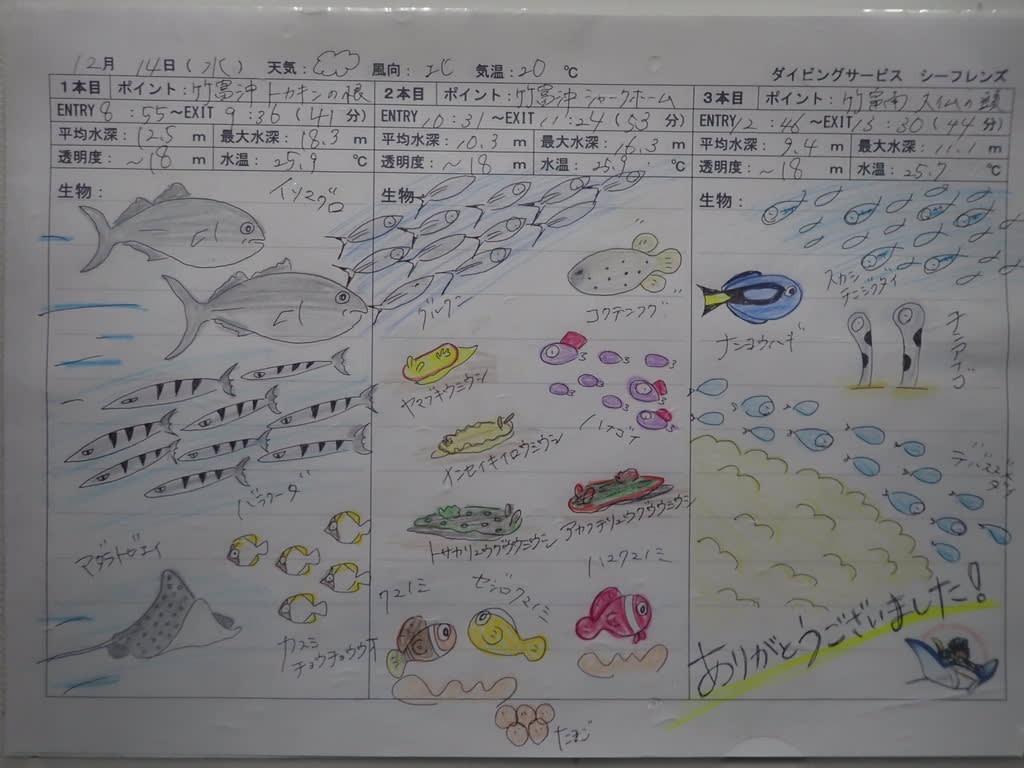 12月 14日(水) 天気: 風向:北 気温:20 ℃
ダイビングサービス シーフレンズ
1本目 ポイント:竹富沖 トカキンの根
ENTRY 8:55~EXIT 9:36(41分)
平均水深:12.5 m 最大水深:18.3 m
透明度:~18 m 水温:25.9 ℃
生物:
イソマグロ
バラクーダ
マダラトビエイ
カスミ
チョウチョウウオ
2本目 ポイント:竹富沖 シャークホーム
ENTRY 10:31~EXIT 11:24(53分)
平均水深:10.3 m 最大水深:16.3 m
透明度:~18 m 水温:25.9 ℃
生物:
グルクン
コクテンフグ
ヤマブキウミウシ
ハナゴイ
インセイキイロウミウシ
トサカリュウグウウミウシ
アカフチリュウグウウミウシ
クマノミ
セジロクマノミ
ハマクマノミ
たまご
3本目 ポイント:竹富南 スイムの頭
ENTRY 12:46~EXIT 13:30(44分)
平均水深:9.4 m 最大水深:11.1 m
透明度:~18 m 水温:25.7 ℃
生物:
スカシ
テンジクダイ
ナンヨウハギ
チンアナゴ
デバスズメダイ
ありがとうございました!